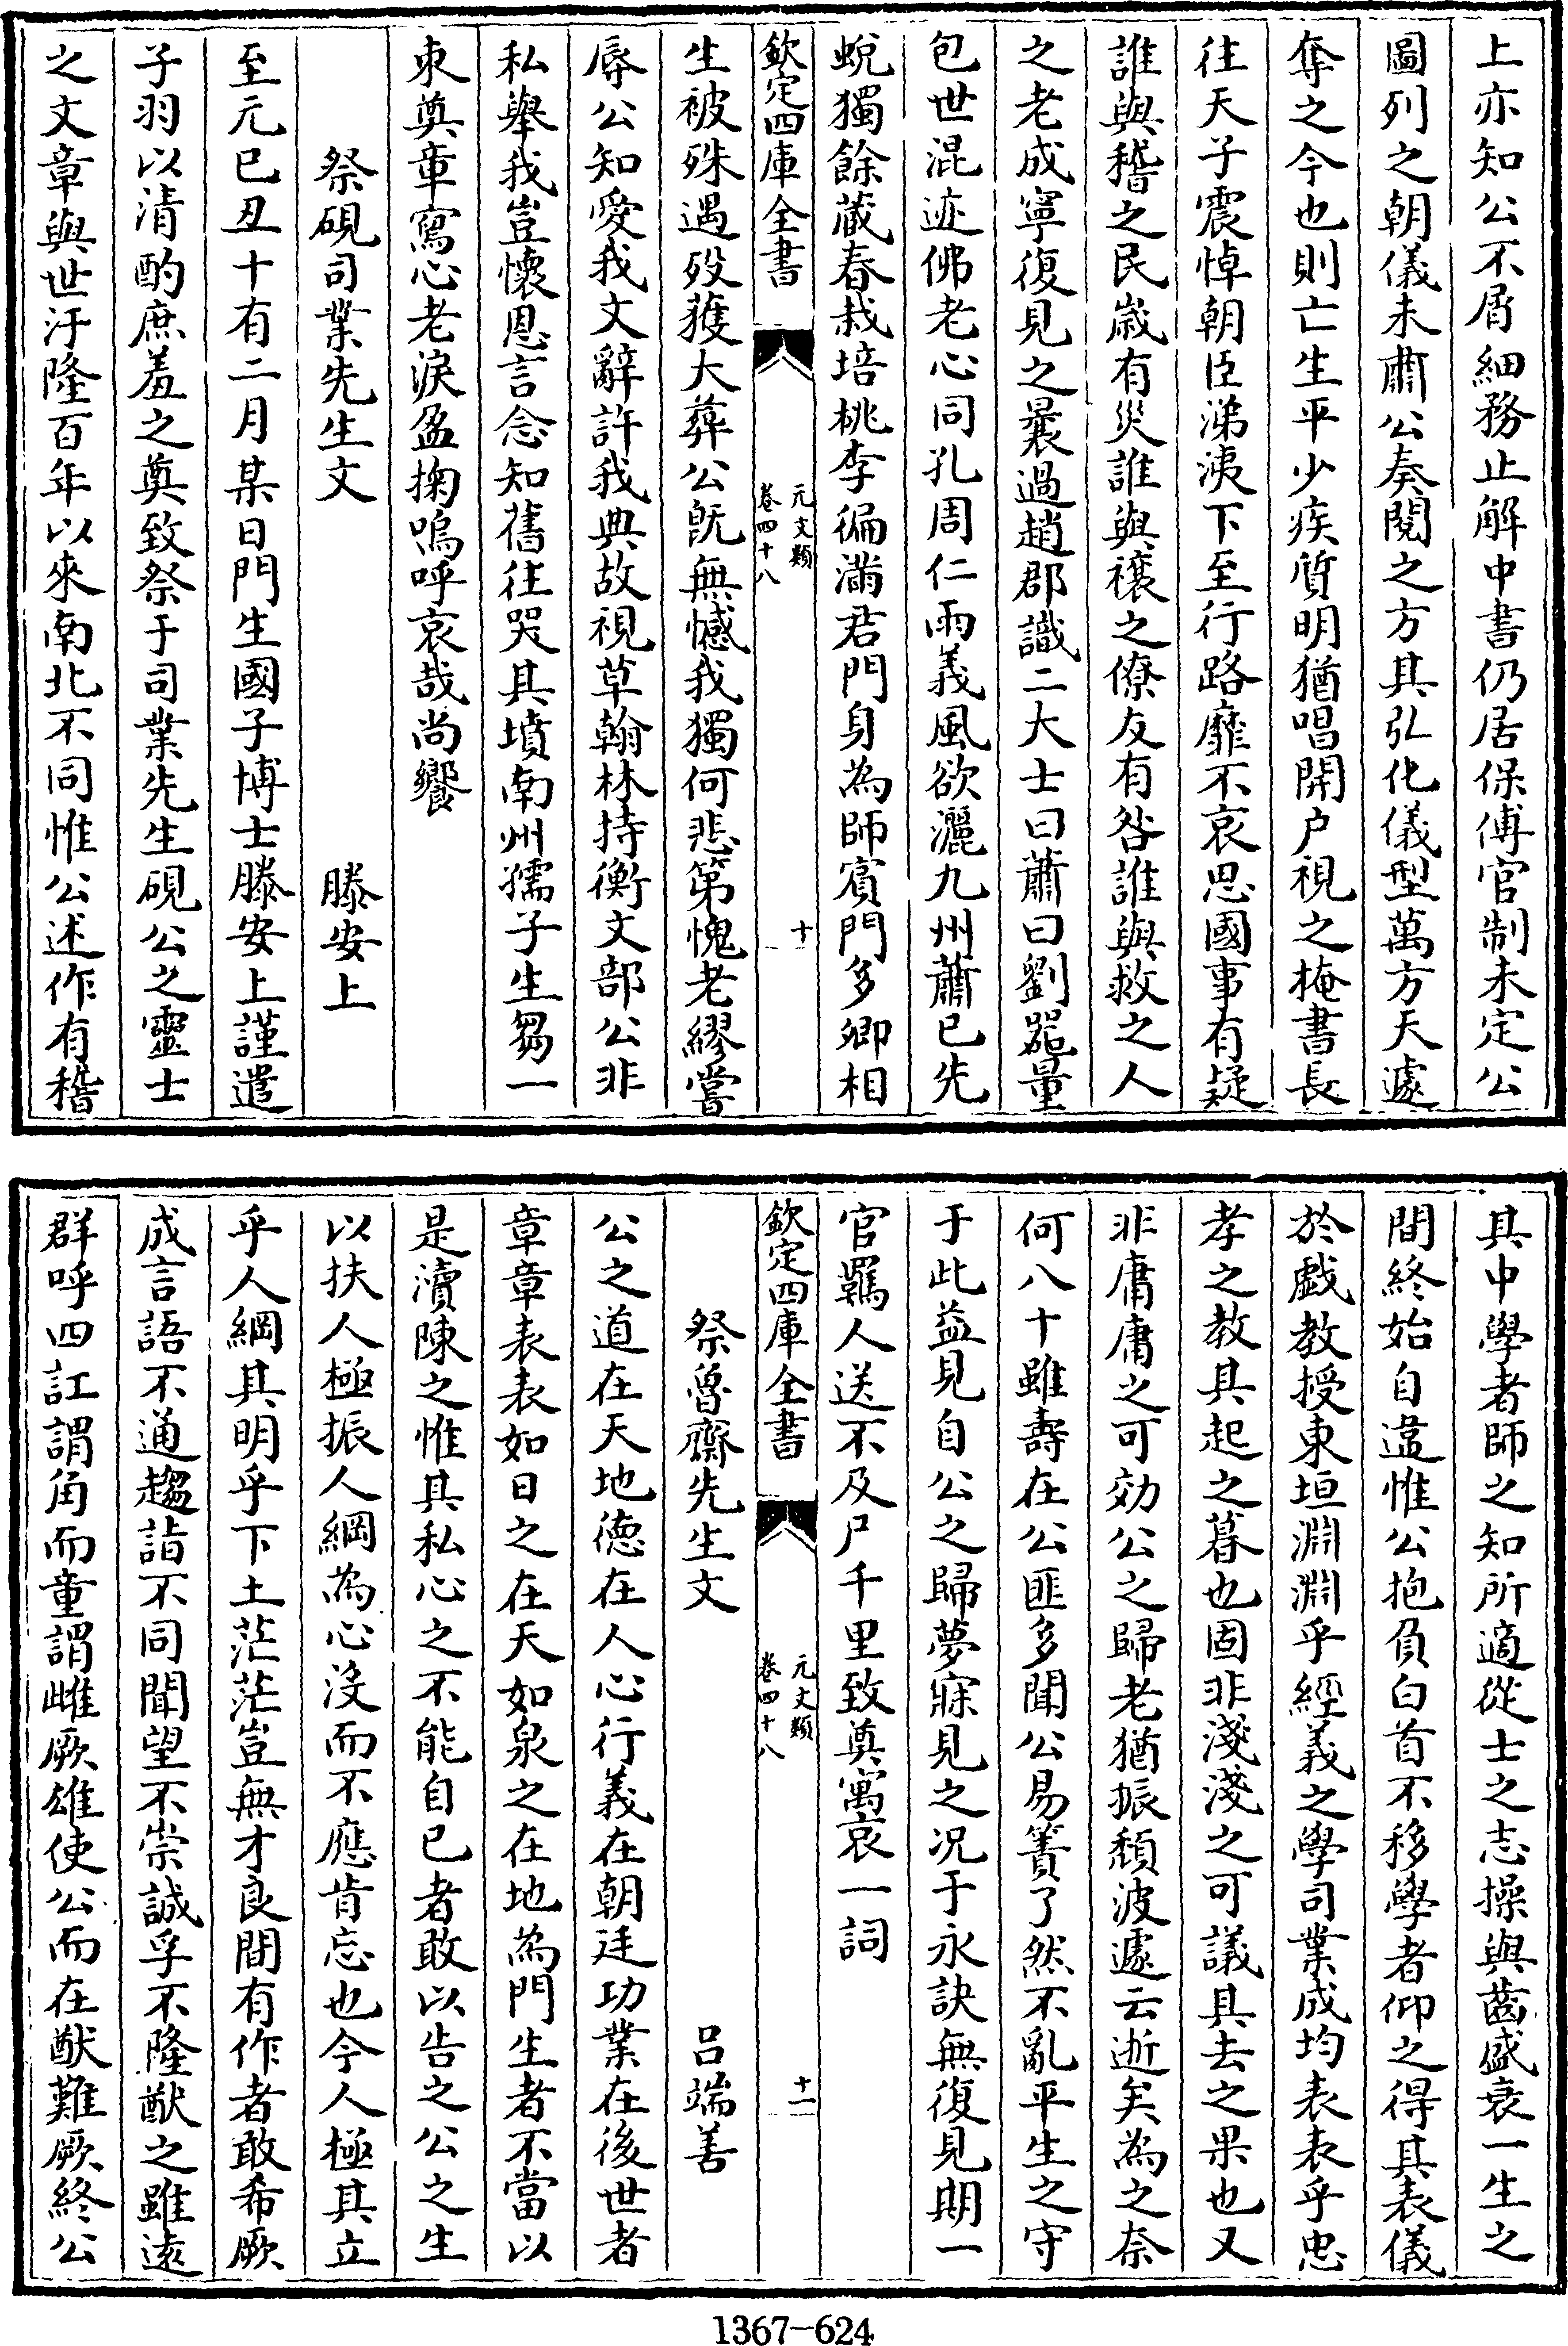 上亦知公不屑細務止解中書仍居保傅官制未定公
圖列之朝儀未肅公奏閱之方其弘化儀型萬方天遽
奪之今也則亡生平少疾質明猶唱開户視之掩書長
往天子震悼朝臣涕洟下至行路靡不哀思國事有疑
誰與稽之民嵗有災誰與禳之僚友有咎誰與救之人
之老成寧復見之曩過趙郡識二大士曰蕭曰劉器量
包世混迹佛老心同孔周仁雨義風欲灑九州蕭已先
蛻獨餘蔵春栽培桃李徧滿君門身為師賓門多卿相
欽定四庫全書 元文類 卷四十八 十
生被殊遇殁獲大葬公旣無憾我獨何悲第愧老繆嘗
辱公知愛我文辭許我典故視草翰林持衡文部公非
私舉我豈懷恩言念知舊往哭其墳南州孺子生芻一
束奠章寫心老淚盈掬嗚呼哀哉尚饗
祭硯司業先生文 滕安上
至元已丑十有二月某日門生國子博士滕安上謹遣
子羽以清酌庶羞之奠致祭于司業先生硯公之靈士
之文章與世汙隆百年以來南北不同惟公述作有稽
其中學者師之知所適從士之志操與齒盛衰一生之
間終始自違惟公抱負白首不移學者仰之得其表儀
於戯教授東垣淵淵乎經義之學司業成均表表乎忠
孝之教其起之暮也固非淺淺之可議其去之果也又
非庸庸之可効公之歸老猶振頽波遽云逝矣為之奈
何八十雖壽在公匪多聞公易簀了然不亂平生之守
于此益見自公之歸夢寐見之况于永訣無復見期一
官羈人送不及尸千里致奠寓哀一詞
欽定四庫全書 元文類 卷四十八 十一
祭魯齋先生文 吕端善
公之道在天地德在人心行義在朝廷功業在後世者
章章表表如日之在天如泉之在地為門生者不當以
是瀆陳之惟其私心之不能自已者敢以告之公之生
以扶人極振人綱為心沒而不應肯忘也今人極其立
乎人綱其明乎下土茫茫豈無才良間有作者敢希厥
成言語不通趨詣不同聞望不崇誠孚不隆猷之雖遠
群呼四訌謂角而童謂雌厥雄使公而在猷難厥終公
1367-624